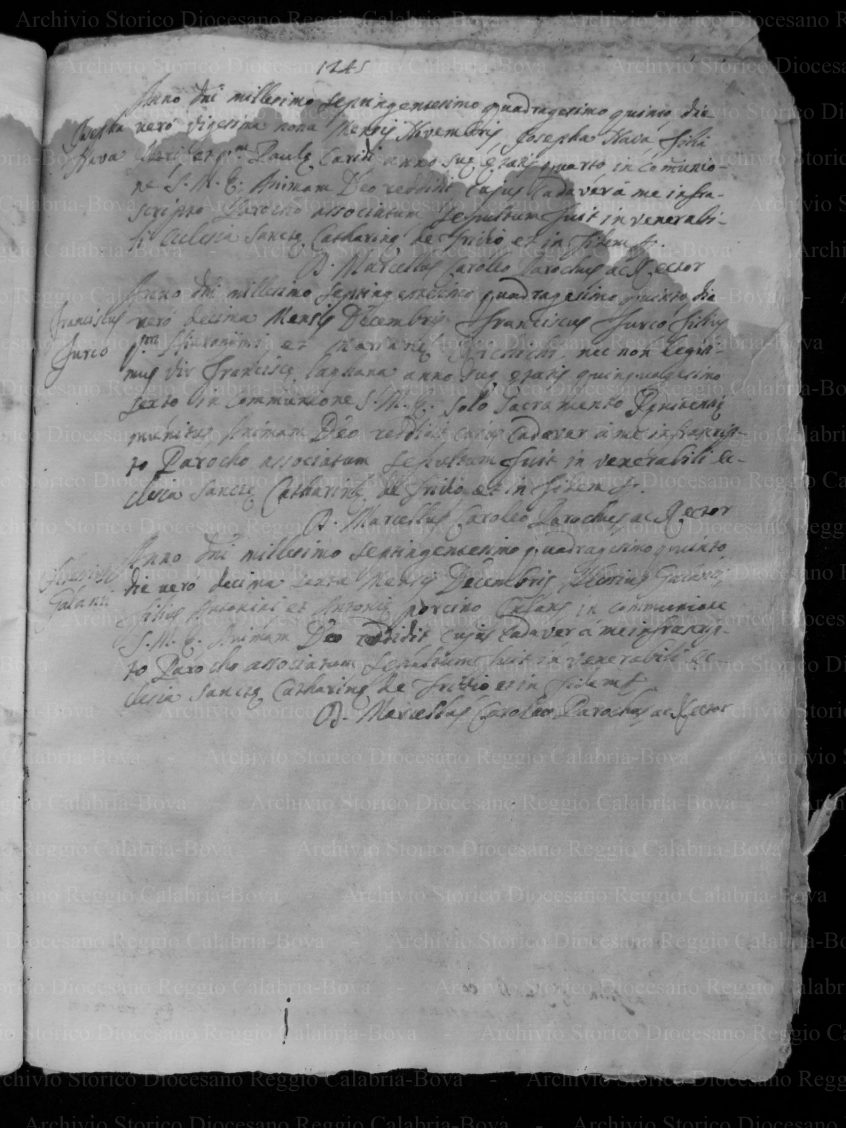 1745
Anno dñi millesimo septingentesimo quadragesimo quinto die
Josepha
Nava
vero vigesima nona Mensis Novembris Josepha Nava filia
et Paulę Cariti anno suę ętatis quarto, in communio-
ne S. M. E. Animam Deo reddidit cujus Cadaver a me infra-
scripto Parocho associatum sepultum fuit in venerabi-
li Eclesia Sanctę Catharinę de et in fidem &.
D. Marcellus Caroleo Parochus ac Rector
Anno dñi millesimo septingentesimo quadragesimo quinto die
Franciscus
Furco
vero decima Mensis Decembris Franciscus Furco filius
qm Hieronimi et Marianę nec non legiti-
mus vir Franciscę Laganà anno suę ętatis quinquagesimo
sexto in communione S. M. E. solo Sacramento Pęnitentię
munitus Animam Deo reddidit cujus Cadaver a me infrascrip-
to Parocho associatum sepultum fuit in venerabili Ec-
clesia Sanctę Catharinę de et in fidem &.
D. Marcellus Caroleo Parochus ac Rector
Anno dñi millesimo septingentesimo quadragesimo quinto
Galanti
die vero decima sexta Mensis Decembris
filius Antonini et Antonię porcino Infans in communione
S. M. E. Animam Deo reddidit cujus Cadaver a me infrascrip-
to Parocho associatum sepultum fuit in venerabili Ec-
clesia Sanctę Catharinę de et in fidem &
D. Marcellus Caroleo Parochus ac Rector
Archivio Storico Diocesano Reggio Calabria-Bova